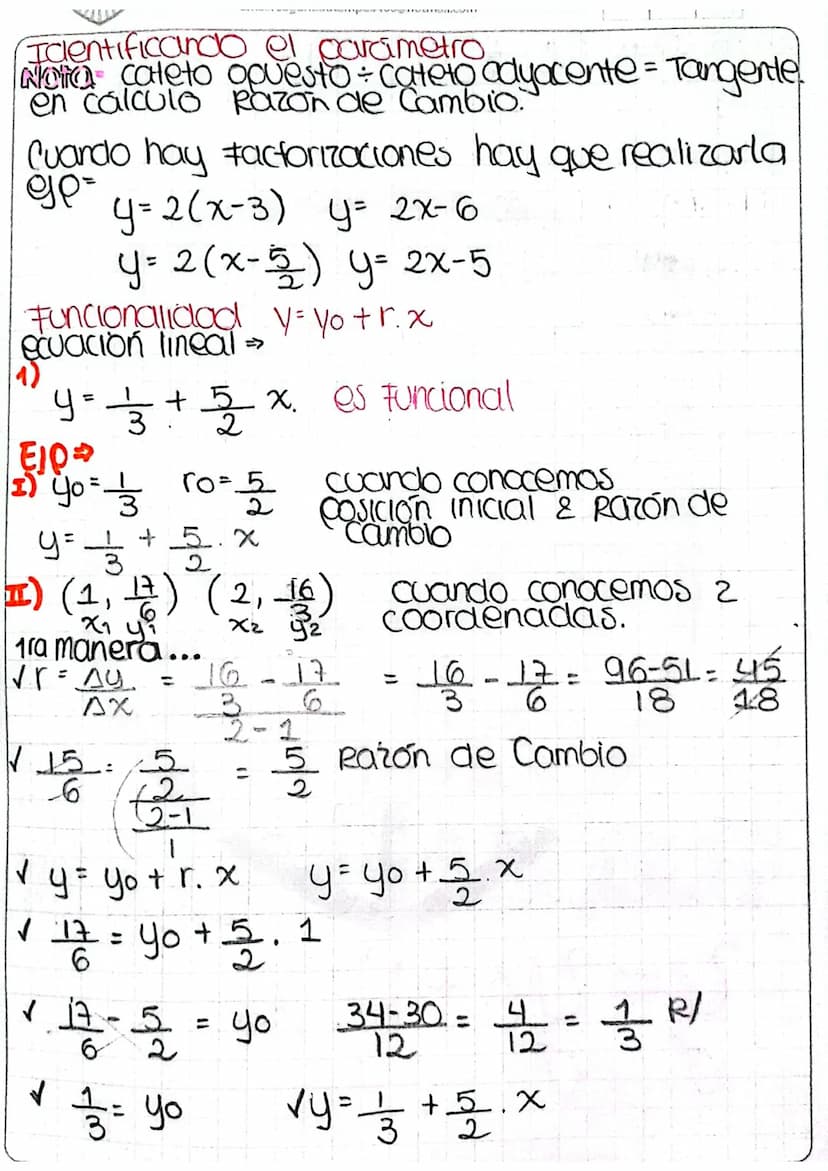 Identificando el parámetro
Nota= cateto opuesto ÷ cateto adyacente = Tangente.
en cálculo Razón de Cambio.
Cuando hay factorizaciones hay que realizarla
ejp=
y= 2(x-3) y= 2x-6
y= 2(x-5/2) y= 2x-5
Funcionalidad y=yo+r.x
ecuación lineal ⇒
1)
y= 1/3 + 5/2 x. es Funcional
Ejp⇒
I) yo=1/3 ro=5/2 cuando conocemos
posición inicial & Razón de
cambio
y= 1/3 + 5/2 . x
II) (1, 17/6) (2, 16/3) cuando conocemos 2
x1 y1 x2 y2 coordenadas.
1ra manera...
√ r = Δy/Δx = (16/3 - 17/6)/(2-1) = 16/3 - 17/6 = 96-51/18 = 45/18
√ 15/6 : (5/2)/((2-1)/1) = 5/2 Razón de Cambio
√ y= yo + r. x y= yo + 5/2 x
√ 17/6 = yo + 5/2 . 1
√ 17/6 - 5/2 = yo 34-30/12 = 4/12 = 1/3 R/
√ 1/3 = yo √y= 1/3 + 5/2 . x